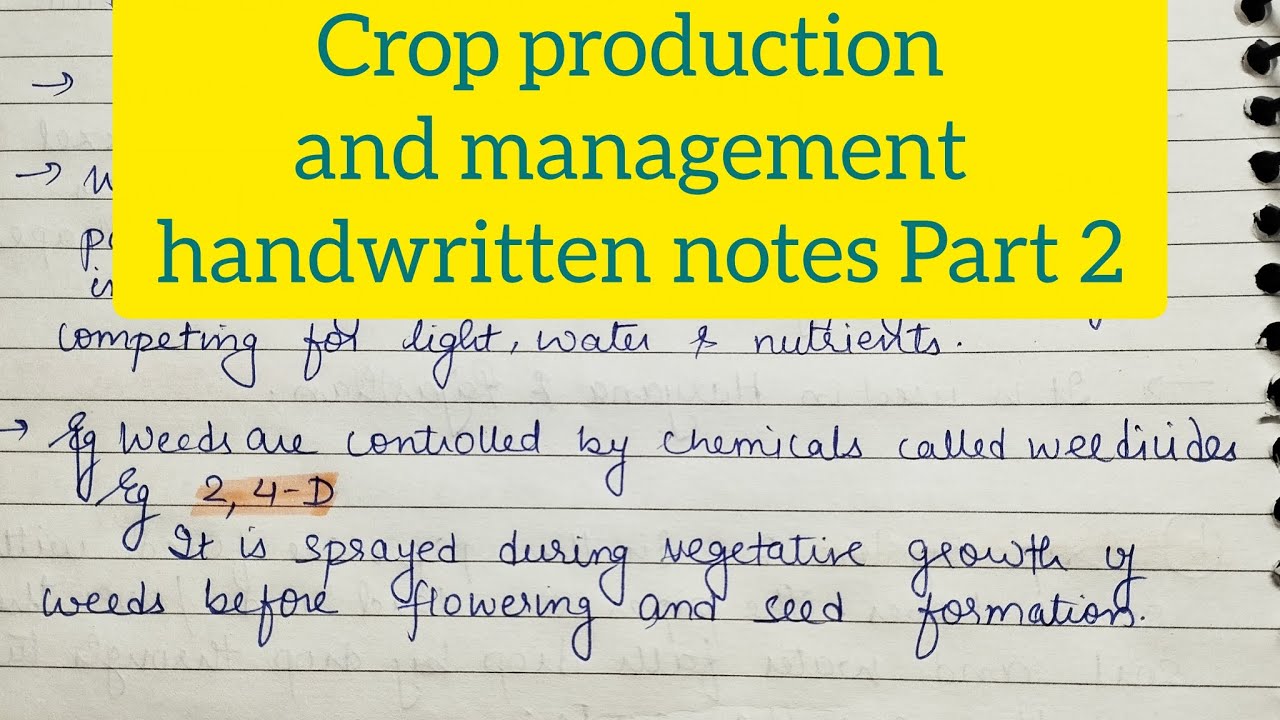 Crop production
and management
handwritten notes Part 2
→
→
competing for light, water & nutrients.
→ Eg Weeds are controlled by chemicals called weedicides
Eg 2, 4-D
It is sprayed during vegetative growth of
weeds before flowering and seed formation.